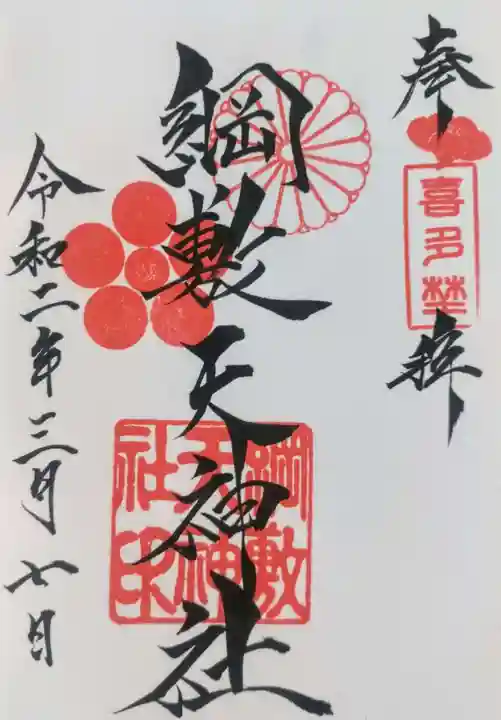 奉拝
喜多埜
綱敷天神社
綱敷
天神
社印
令和二年三月七日